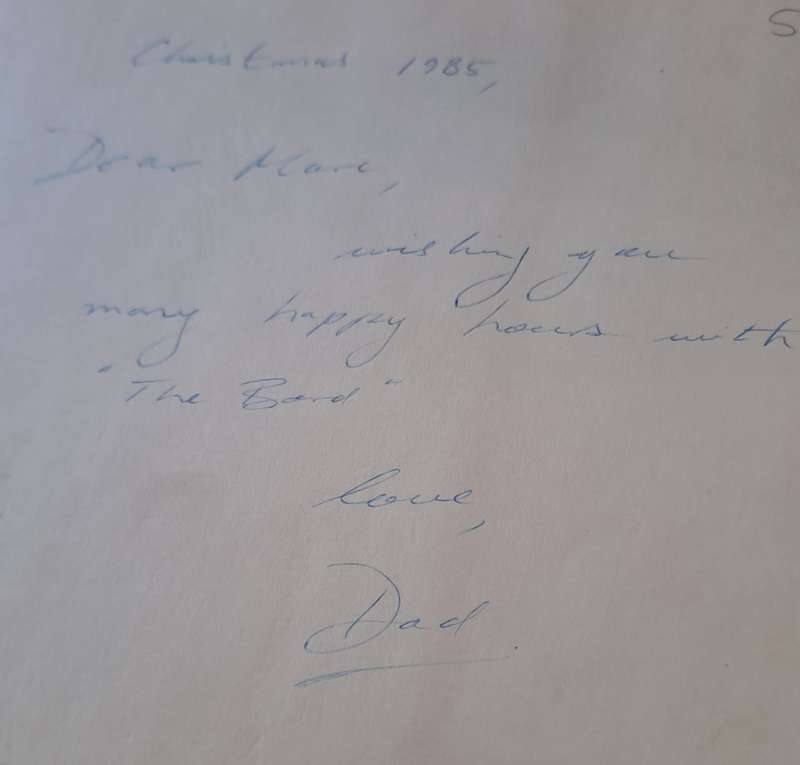 S
Christmas 1985,
Dear Marc,
wishing you
many happy hours with
"The Bard"
love,
Dad.